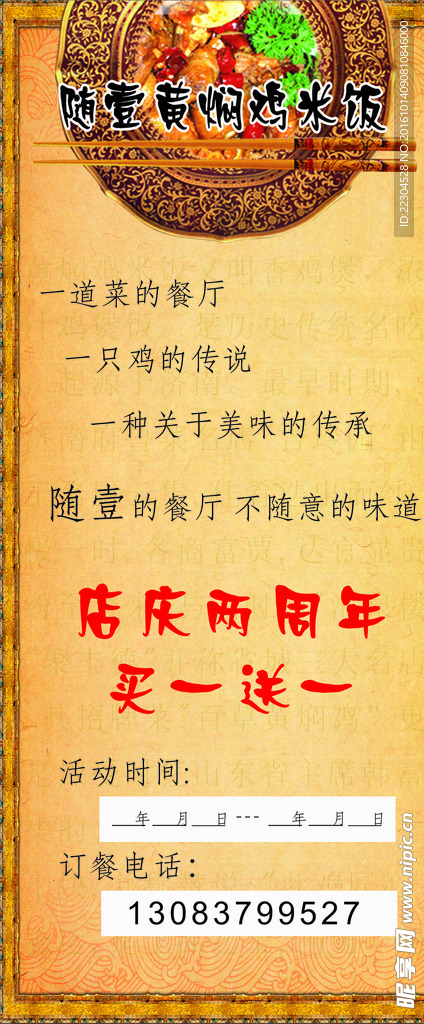 随壹黄焖鸡米饭
一道菜的餐厅
一只鸡的传说
一种关于美味的传承
随壹的餐厅 不随意的味道
店庆两周年
买一送一
活动时间:
__年__月__日---__年__月__日
订餐电话:
13083799527
ID:22304528 NO:20161014090810846000
昵享网 www.nipic.cn